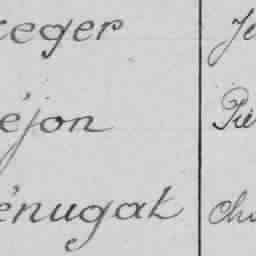 ceger Je
éjon Pie
énugat Cha